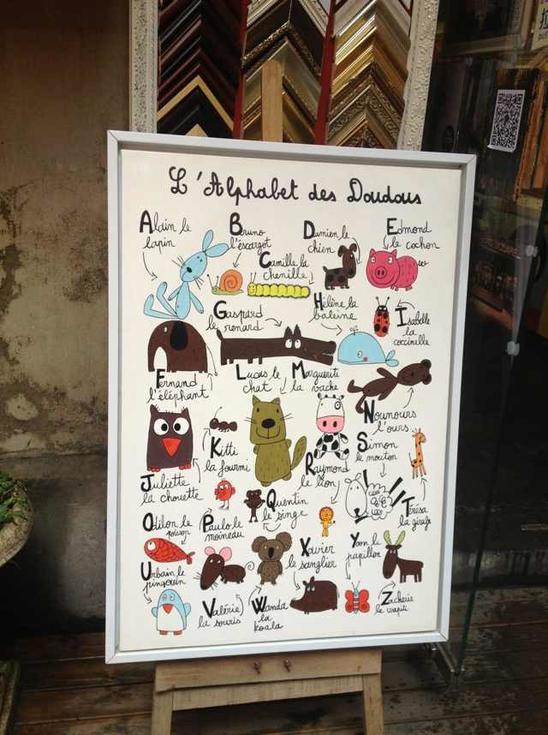 L'Alphabet des Doudous
Alain le
lapin
Bruno
l'escargot
Camille la
chenille
Damien le
chien
Edmond
le cochon
Fernand
l'éléphant
Gaspard
le renard
Hélène la
baleine
Isabelle
la
coccinelle
Juliette
la chouette
Kitti
la fourmi
Lucas le
chat
Marguerite
la vache
Nounours
l'ours
Odilon le
poisson
Paulo le
moineau
Quentin
le singe
Raymond
le lion
Simon
le mouton
Térésa
la girafe
Urbain le
pingouin
Valérie
la souris
Wanda
la
koala
Xavier
le sanglier
Yvon le
papillon
Zacharie
le wapiti